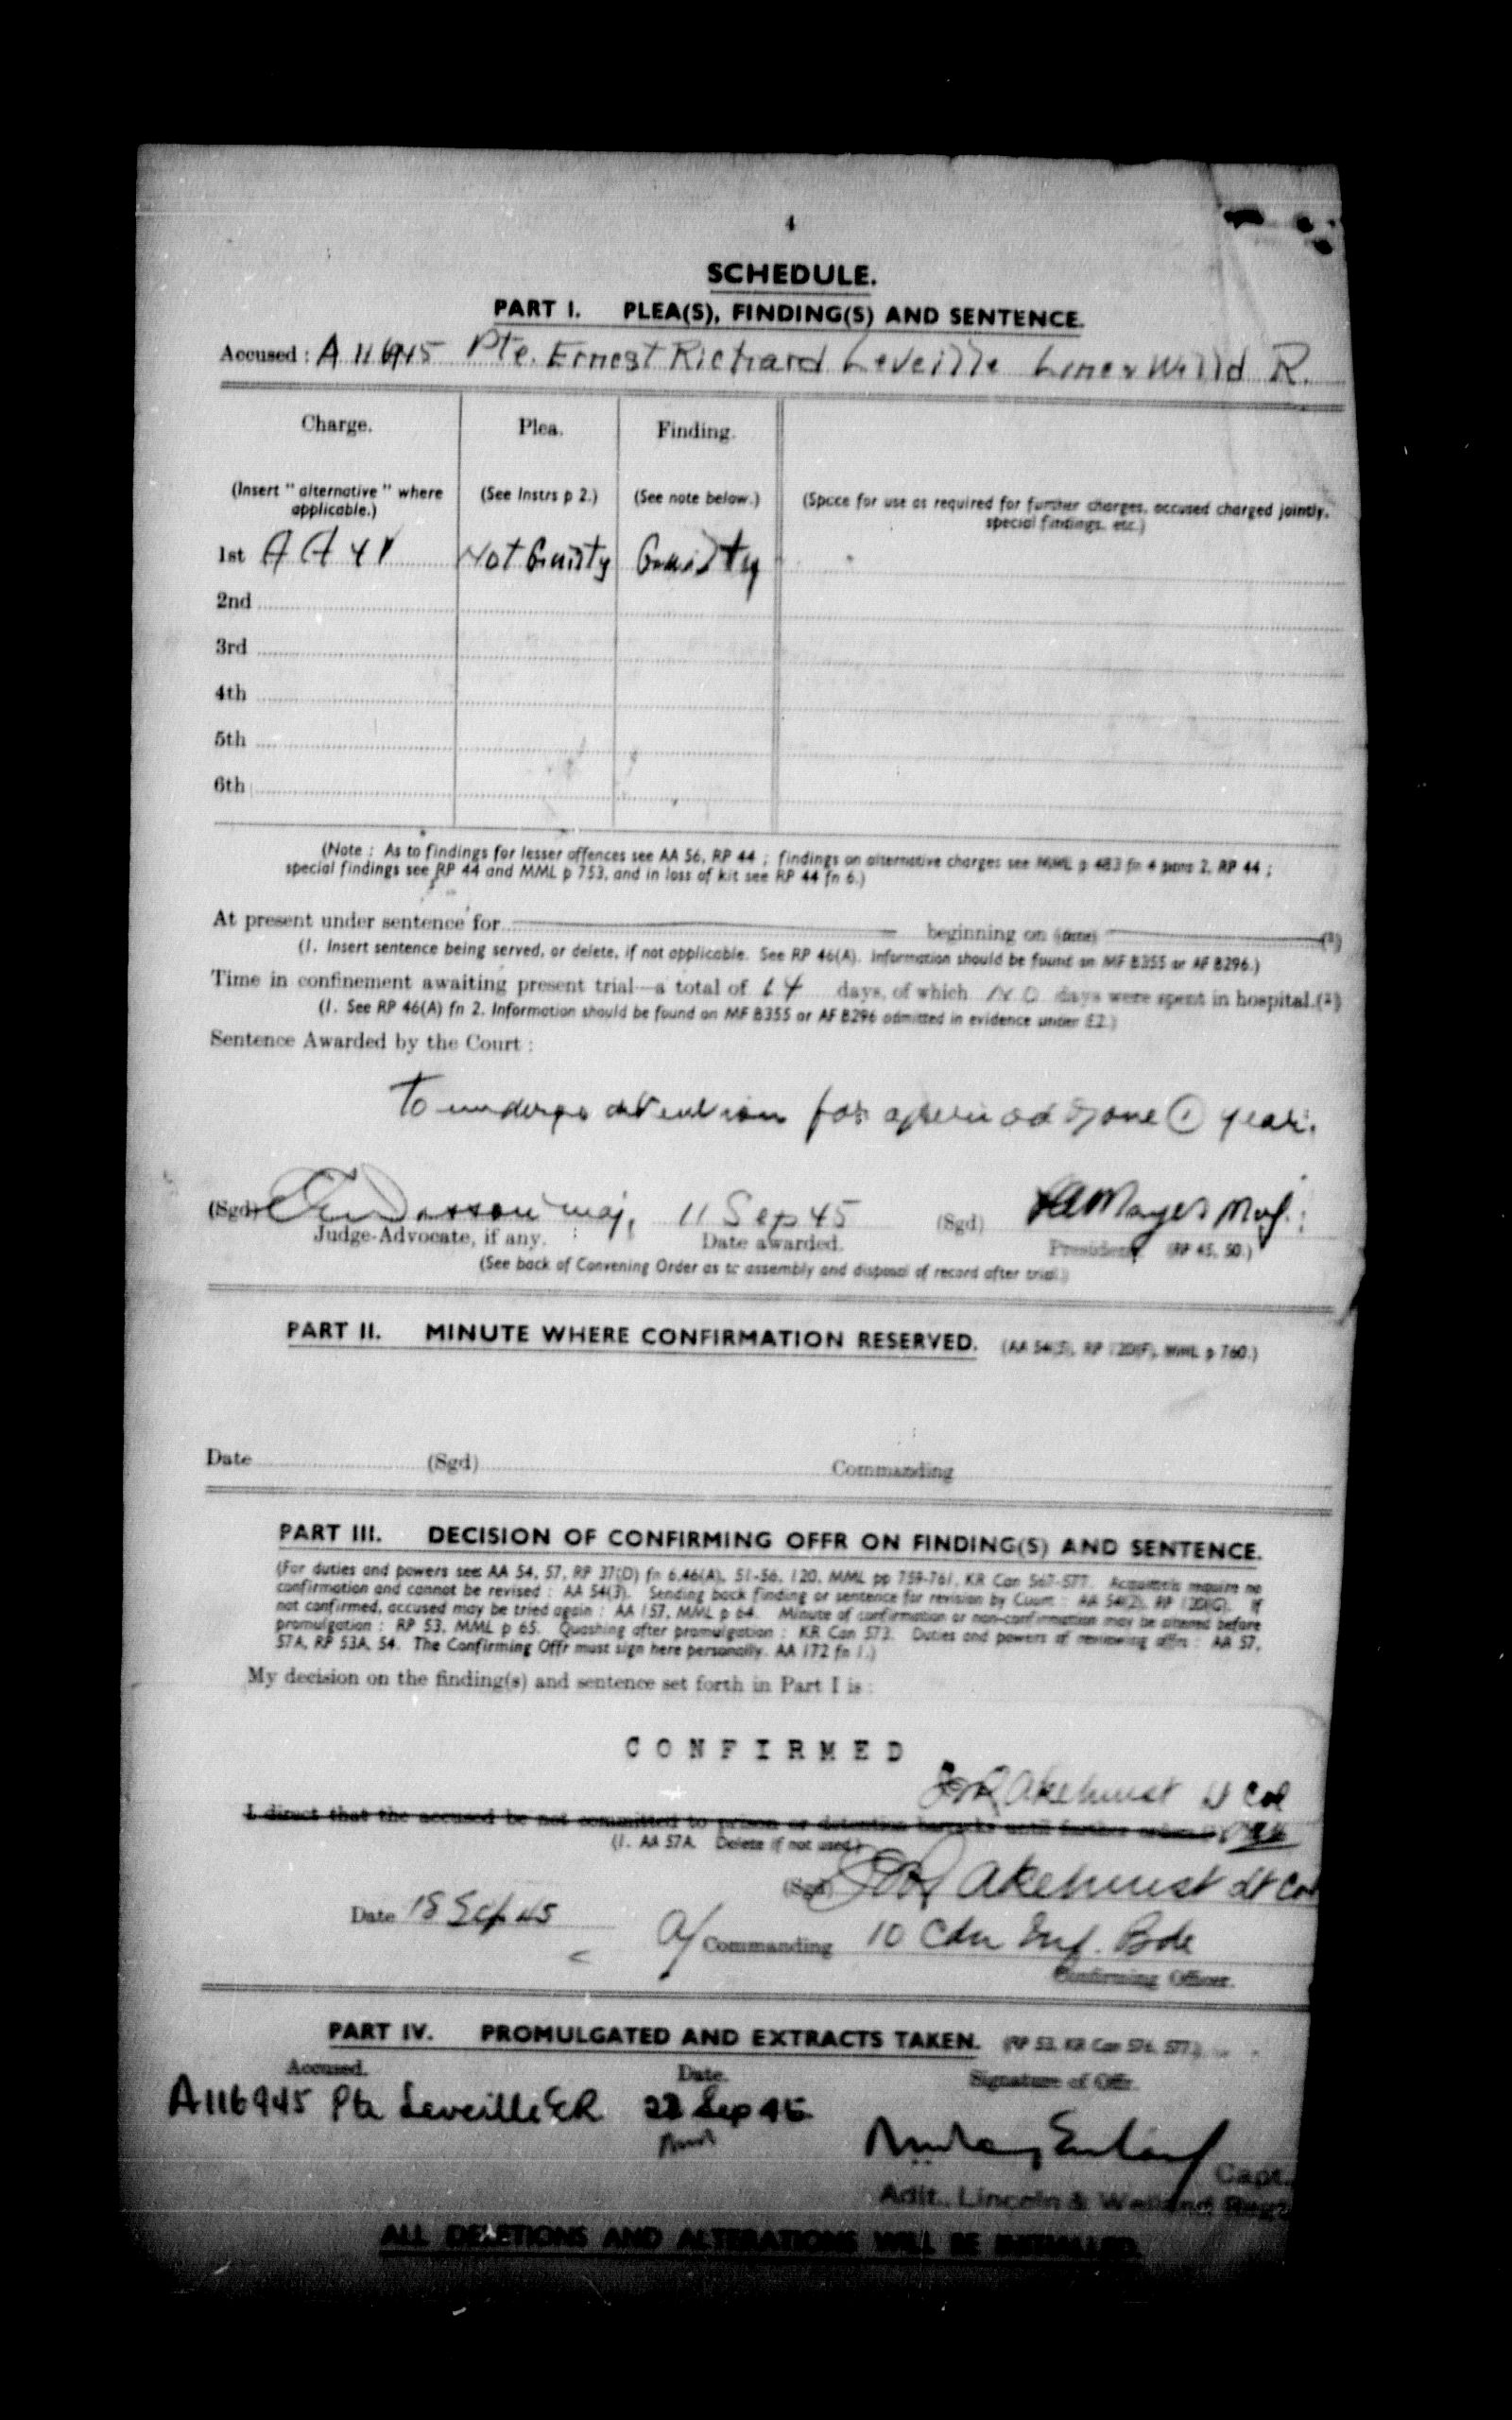 4
SCHEDULE.
PART I. PLEA(S), FINDING(S) AND SENTENCE.
Accused : A 116945 Pte. Ernest Richard Leveille Linc & Welld R.
Charge. Plea. Finding.
(Insert " alternative " where applicable.) (See Instrs p 2.) (See note below.) (Space for use as required for further charges, accused charged jointly, special findings, etc.)
1st AA 41 Not Guilty Guilty
2nd
3rd
4th
5th
6th
(Note : As to findings for lesser offences see AA 56, RP 44 ; findings on alternative charges see MML p 483 fn 4 para 2, RP 44 ;
special findings see RP 44 and MML p 753, and in loss of kit see RP 44 fn 6.)
At present under sentence for beginning on (date) (1)
(1. Insert sentence being served, or delete, if not applicable. See RP 46(A). Information should be found on MF B355 or AF B296.)
Time in confinement awaiting present trial—a total of 64 days, of which NO days were spent in hospital.(1)
(1. See RP 46(A) fn 2. Information should be found on MF B355 or AF B296 admitted in evidence under E2.)
Sentence Awarded by the Court :
To undergo detention for a period of one (1) year.
(Sgd) maj, 11 Sep 45 (Sgd) Maj.
Judge-Advocate, if any. Date awarded. President. (RP 45, 50.)
(See back of Convening Order as to assembly and disposal of record after trial.)
PART II. MINUTE WHERE CONFIRMATION RESERVED. (AA 54(5), RP 120(F), MML p 760.)
Date (Sgd) Commanding
PART III. DECISION OF CONFIRMING OFFR ON FINDING(S) AND SENTENCE.
(For duties and powers see AA 54, 57, RP 37(D) fn 6,46(A), 51-56, 120, MML pp 759-761, KR Can 567-577. Acquittals require no
confirmation and cannot be revised : AA 54(3). Sending back finding or sentence for revision by Court : AA 54(2), RP 120(G). If
not confirmed, accused may be tried again : AA 157, MML p 64. Minute of confirmation or non-confirmation may be altered before
promulgation : RP 53, MML p 65. Quashing after promulgation : KR Can 573. Duties and powers of reviewing offrs : AA 57,
57A, RP 53A, 54. The Confirming Offr must sign here personally. AA 172 fn 1.)
My decision on the finding(s) and sentence set forth in Part I is :
CONFIRMED
Akehurst Lt Col
I direct that the accused be not committed to prison or detention barracks until further orders.
(1. AA 57A. Delete if not used.)
(Sgd) Akehurst Lt Col
Date 18 Sep 45 A/ Commanding 10 Cdn Inf. Bde
Confirming Officer.
PART IV. PROMULGATED AND EXTRACTS TAKEN. (RP 53, KR Can 576, 577.)
Accused. Date. Signature of Offr.
A116945 Pte Leveille ER 22 Sep 45
Capt.
Adjt., Lincoln & Welland Regt
ALL DELETIONS AND ALTERATIONS WILL BE INITIALLED.